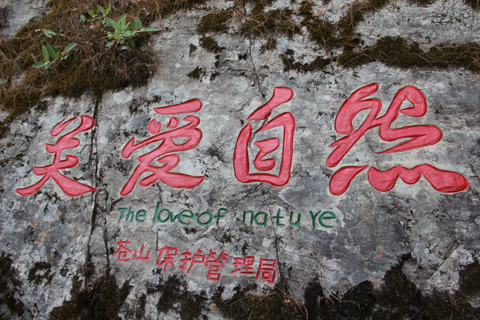 关爱自然
The love of nature
苍山保护管理局